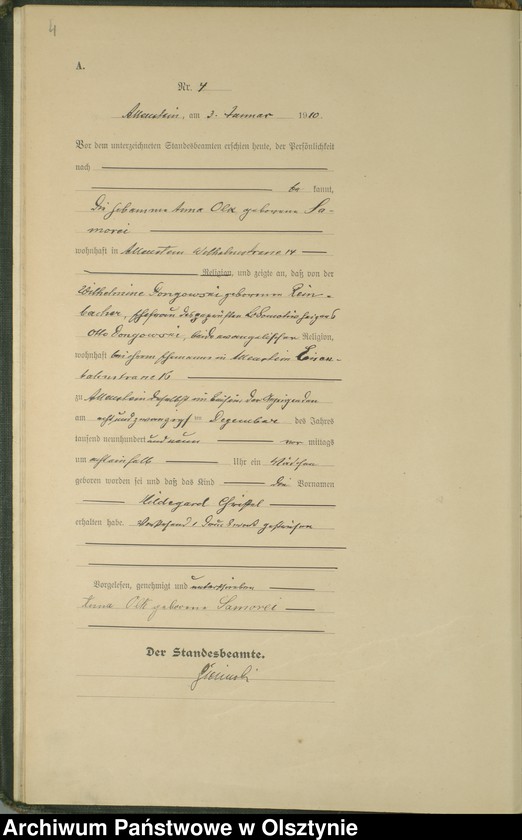 4
A.
Nr. 4
Allenstein, am 3. Januar 1910.
Vor dem unterzeichneten Standesbeamten erschien heute, der Persönlichkeit
nach
be kannt,
die Hebamme Anna Olk geborene Sa-
morei
wohnhaft in Allenstein Wilhelmstrasse 14
Religion, und zeigte an, daß von der
Wilhelmine Dongowski geborenen Rein-
bacher, Ehefrau des geprüften Lokomotivheizers
Otto Dongowski, beide evangelischer Religion,
wohnhaft bei ihrem Ehemanne in Allenstein
zu Allenstein daselbst im Beisein der Anzeigenden
am acht und zwanzigsten Dezember des Jahres
tausend neunhundert und neun vor mittags
um acht einhalb Uhr ein Mädchen
geboren worden sei und daß das Kind die Vornamen
Hildegard Christel
erhalten habe. Vorstehend 1 Druckwort gestrichen
Vorgelesen, genehmigt und unterschrieben
Anna Olk geborene Samorei
Der Standesbeamte.
Archiwum Państwowe w Olsztynie